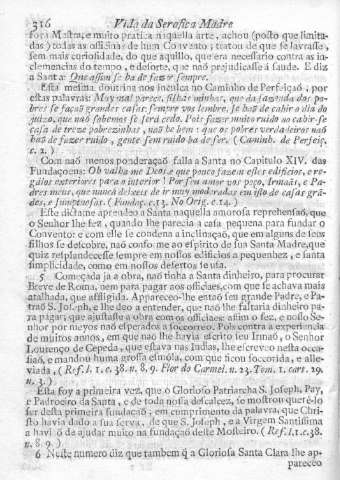 316 Vida da Serafica Madre
fora Mestra, e muito pratica naquella arte, achou (posto que limita-
das) todas as officinas de hum Convento; tratou de que se lavrasse,
sem mais curiosidade, do que aquillo, que era necessario contra as in-
clemencias do tempo, e desorte, que naõ prejudicasse á saude. E diz
a Santa: Que assim se ha de fazer sempre.
Esta mesma doutrina nos inculca no Caminho de Perfeiçaõ, por
estas palavras: Muy mal parece, filhas minhas, que da fazenda dos po-
bres se façaõ grandes casas: sempre vos lembre, se haõ de cahir o dia do
juizo, que naõ sabemos se será cedo. Pois fazer muito ruido ao cahir-se
casa de treze pobrezinhas, naõ he bem: que os pobres verdadeiros naõ
haõ de fazer ruido, gente sem ruido ha de ser. (Caminh. de Perfeiç.
c. 2.)
Com naõ menos ponderaçaõ falla a Santa no Capitulo XIV. das
Fundaçoens: Oh valha me Deos e que pouco fazem estes edificios, e re-
galos exteriores para o interior! Por seu amor vos peço, Irmaãs, e Pa-
dres meus, que nunca deixeis de ir muy moderadas em isto de casas gran-
des, e sumptuosas. (Fundaç. c. 13. No Orig. c. 14.)
Este dictame aprendeo a Santa naquella amorosa reprehensaõ, que
o Senhor lhe fez, quando lhe parecia a casa pequena para fundar o
Convento: e com elle se condena a inclinaçaõ, que em alguns de seus
filhos se descobre, naõ conforme ao espirito de sua Santa Madre, que
quiz resplandecesse sempre em nossos edificios a pequenhez, e santa
simplicidade, como em nossos defertos se usa.
5 Começada ja a obra, naõ tinha a Santa dinheiro, para procurar
Breve de Roma, nem para pagar aos officiaes, com que se achava mais
atalhada, que affligida. Appareceo-lhe entaõ seu grande Padre, e Pa-
traõ S. Joseph, e lhe deo a entender, que naõ lhe faltaria dinheiro pa-
ra pagar; que ajustasse a obra com os officiaes: assim o fez, e nosso Se-
nhor por meyos naõ esperados a soccorreo. Pois contra a experiencia
de muitos annos, em que naõ lhe havia escrito seu Irmaõ, o Senhor
Lourenço de Cepeda, que estava nas Indias, lhe escreveo nesta occa-
siaõ, e mandou huma grossa esmola, com que ficou soccorrida, e alle-
viada, (Ref. l. 1. c. 38. n. 8. 9. Flor do Carmel. n. 23. Tom. 1. cart. 29.
n. 3.)
Esta foy a primeira vez, que o Glorioso Patriarcha S. Joseph, Pay,
e Padroeiro da Santa, e de toda nossa descalcez, se mostrou quere-lo
ser desta primeira fundaçaõ, em cumprimento da palavra, que Chri-
sto havia dado a sua serva, de que S. Joseph, e a Virgem Santissima
a haviaõ de ajudar muito na fundaçaõ deste Mosteiro. (Ref. l. 1. c. 38.
n. 8. 9.)
6 Neste numero diz que tambem q̃ a Gloriosa Santa Clara lhe ap-
pareceo